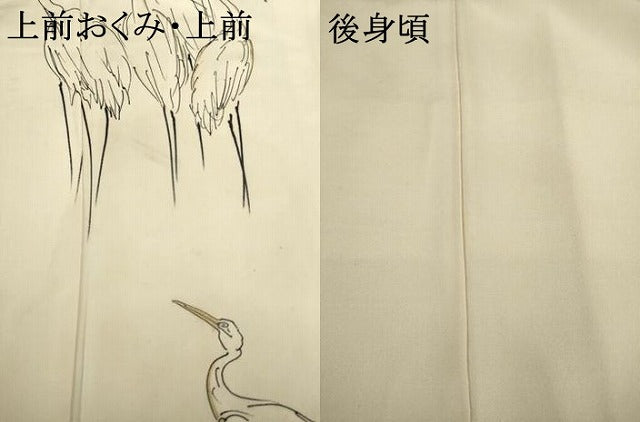 上前おくみ・上前
後身頃